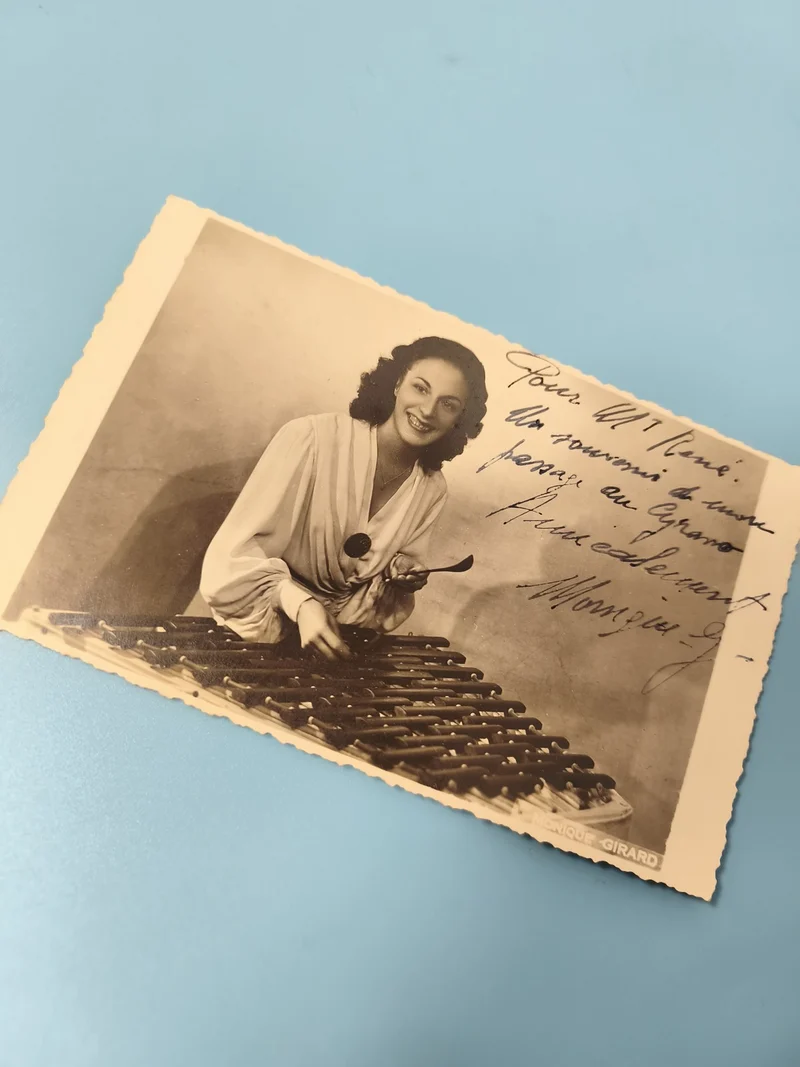 Pour Mr René.
Un souvenir de mon
passage au Cyrano
Amicalement
Monique G
MONIQUE GIRARD